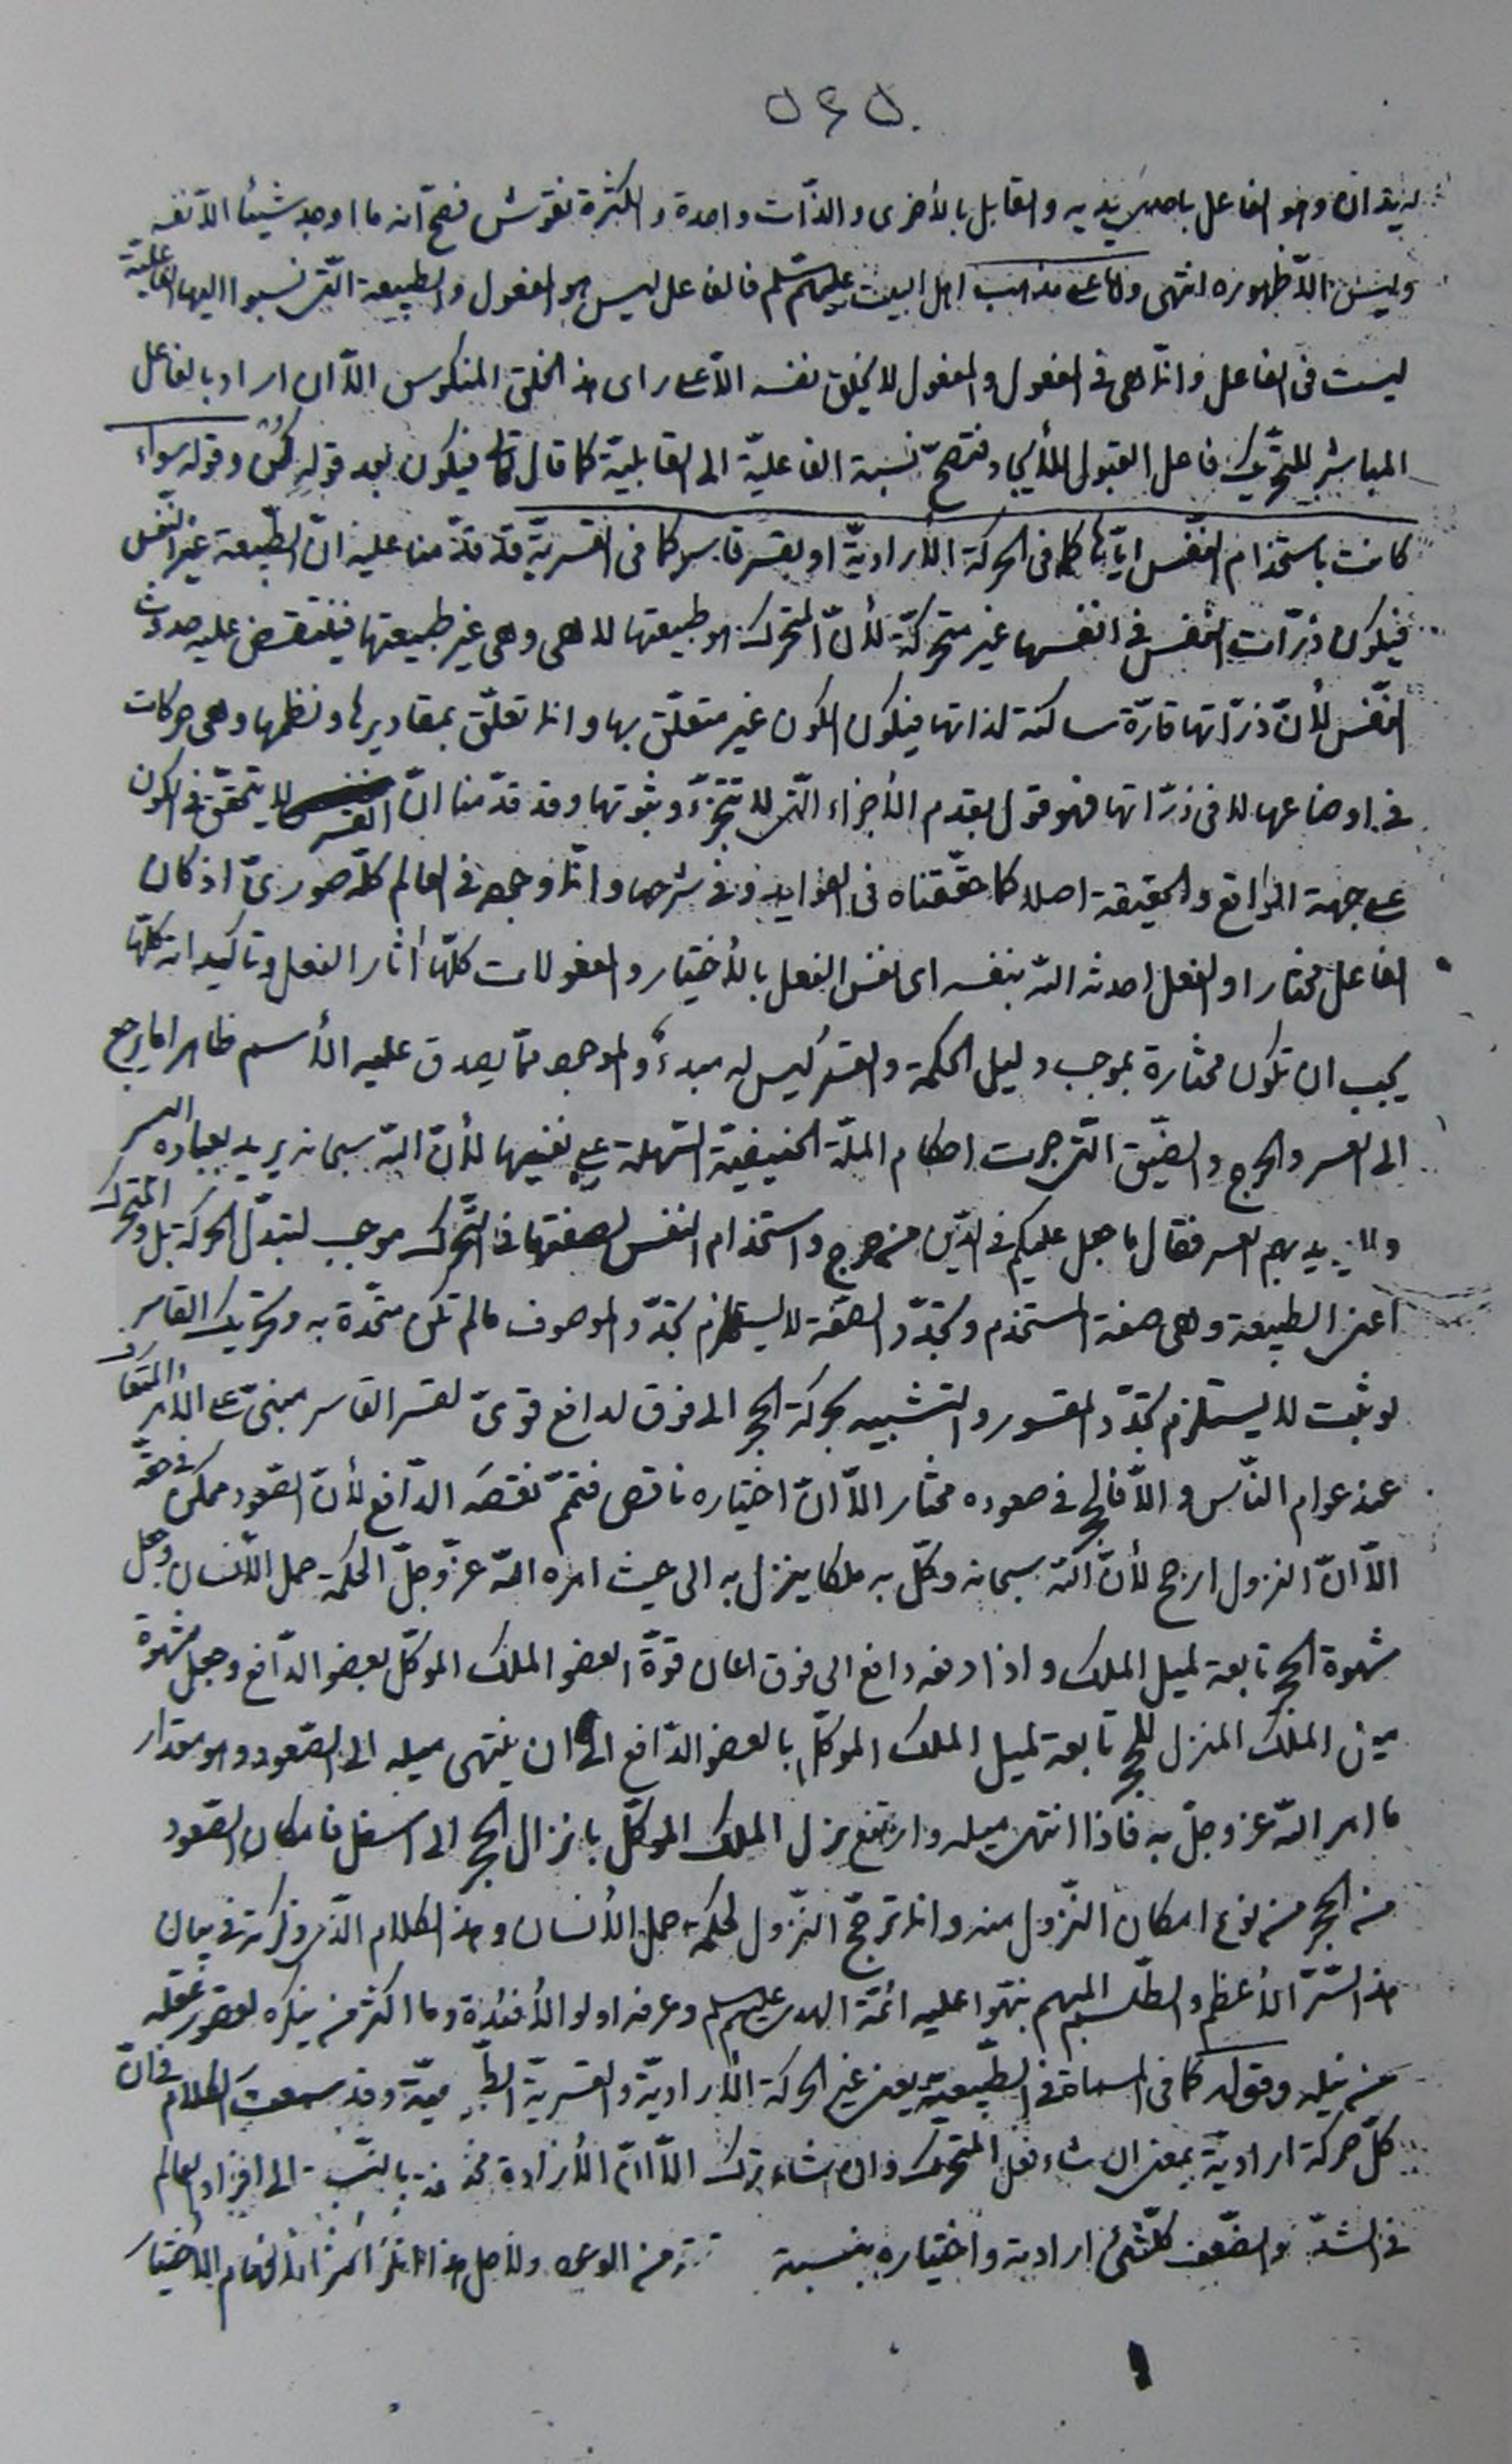 له يدان وهو الفاعل باحدى يديه والقابل بالأخرى والذّات واحدة والكثرة نقوش فصحّ انه ما اوجد شيئا الّا نفسه
وليس الّا ظهوره انتهى وامّا على مذهب اهل البيت عليهم السّلم فالفاعل ليس هو المفعول والطبيعة الّتى نسبوا اليها الفاعلية
ليست فى الفاعل وانّما هى فى المفعول والمفعول لا يخلق نفسه الّا على راى هذا الخلق المنكوس الّا ان اراد بالفاعل
المباشر للتحريك فاعل القبول للتأثير فتصحّ نسبة الفاعليّة الى القابليّة كما قال تعالى فيكون بعد قوله كُنْ وقوله سواء
كانت باستخدام النّفس ايّاها كما فى الحركة الأراديّة او بقسر قاسر كما فى القسريّة قد قدّمنا عليه انّ الطّبيعة غير النّفس
فيكون ذرّات النّفس فى انفسها غير متحركّة لأنّ المتحرك هو طبيعتها لا هى وهى غير طبيعتها فينتقض عليه حدوث
النّفس لأنّ ذرّاتها قارّة ساكنة لذاتها فيكون الكون غير متعلّق بها وانما تعلّق بمقاديرها ونظمها وهى حركات
فى اوضاعها لا فى ذرّاتها فهو قول بقدم الأجزاء الّتى لا تتجزّء وثبوتها وقد قدّمنا انّ القسر لا يتحقّق فى الكون
على جهة الواقع والحقيقة اصلا كما حقّقناه فى الفوايد وفى شرحها وانّما وجوده فى العالم كلّه صورىّ اذ كان
الفاعل مختارا والفعل احدثه اللّه بنفسه اى نفس الفعل بالأختيار والمفعولات كلّها أثار الفعل وتأكيداته كلّها
يجب ان تكون مختارة بموجب دليل الحكمة والقسر ليس له مبدءٌ والموجود ممّا يصدق عليه الأسم ظاهرا ما يرجع
الى العسر والحرج والضّيق الّتى جرت احكام الملّة الحنيفيّة السّهلة على نفيها لأنّ اللّه سبحانه يريد بعباده اليسر
ولا يريد بهم العسر فقال ما جعل عليكم فى الدّين من حرج واستخدام النفس لصفتها فى التّحرك موجب لتبدّل الحركة بل والمتحرك
اعنى الطبيعة وهى صفة المستخدم وتجدّد الصّفة لا يستلزم تجدّد الموصوف ما لم تكن متّحدة به وتحريك القاسر
لو ثبت لا يستلزم تجدّد المقسور والتشبيه بحركة الحجر الى فوق لدافع قوىّ لقسر القاسر مبنىّ على الأمر المتعارف
عند عوام النّاس والّا فالحجر فى صعوده مختار الّا انّ اختياره ناقص فتمّم نقصَه الدّافع لأنّ الصّعود ممكن فى حقّه
الّا انّ النزول ارجح لأنّ اللّه سبحانه وكّل به ملكا ينزل به الى حيث امره اللّه عزّ وجلّ لحكمة حمل الأنسان وجعل
شهوة الحجر تابعة لميل الملك واذا دفعه دافع الى فوق اعان قوّة العضو الملك الموكّل بعضو الدّافع وجعل شهوة
ميل الملك المنزل للحجر تابعة لميل الملك الموكّل بالعضو الدّافع الى ان ينتهى ميله الى الصّعود وهو مقدار
ما امر اللّه عز وجلّ به فاذا انتهى ميله وارتفع نزل الملك الموكّل بانزال الحجر الى اسفل فامكان الصّعود
من الحجر من نوع امكان النّزول منه وانما ترجّح النّزول لحكمة حمل الأنسان وهذا الكلام الّذى ذكرته فى بيان
هذا السّرّ الأعظم والطّلسم المبهم نبّهوا عليه ائمّة الهدى عليهم السلم وعرفه اولو الأفئدة وما اكثر من ينكره لقصور عقله
عن نيله وقوله كما فى المسماة فى الطّبيعيّة يعنى غير الحركة الأراديّة والقسريّة الطّبيعيّة وقد سمعتَ الكلام فانّ
كلّ حركة اراديّة بمعنى ان شاء فعل المتحرّك وان شاء ترك الّا انّ الأرادة بالنّسبة الى افراد العالم
فى الشدّة والضّعف كلّ شئ ارادته واختياره بنسبة من الوجود ولأجل هذا الأختيار